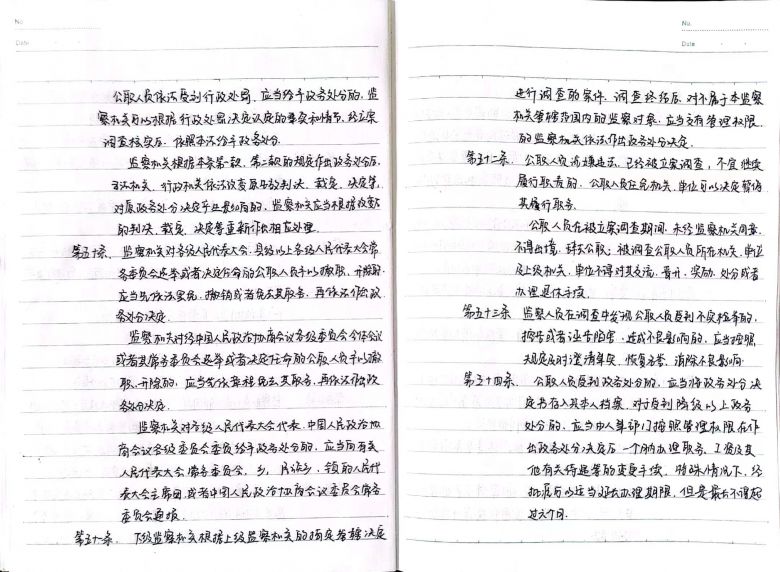 No.
Date
公职人员依法受到行政处罚，应当给予政务处分的，监
察机关可以根据行政处罚决定认定的事实和情节，经立案
调查核实后，依照本法给予政务处分。
监察机关根据本条第一款、第二款的规定作出政务处分后，
司法机关、行政机关依法改变原生效判决、裁定、决定等，
对原政务处分决定产生影响的，监察机关应当根据改变后
的判决、裁定、决定等重新作出相应处理。
第五十条、监察机关对各级人民代表大会、县级以上各级人民代表大会常
务委员会选举或者决定任命的公职人员予以撤职、开除的，
应当先依法罢免、撤销或者免去其职务，再依法作出政
务处分决定。
监察机关对经中国人民政治协商会议各级委员会全体会议
或者其常务委员会选举或者决定任命的公职人员予以撤
职、开除的，应当先依章程免去其职务，再依法作出政
务处分决定。
监察机关对各级人民代表大会代表、中国人民政治协
商会议各级委员会委员给予政务处分的，应当向有关
人民代表大会常务委员会，乡、民族乡、镇的人民代
表大会主席团或者中国人民政治协商会议委员会常务
委员会通报。
第五十一条、下级监察机关根据上级监察机关的指定管辖决定
No.
Date
进行调查的案件，调查终结后，对不属于本监察
机关管辖范围内的监察对象，应当交有管理权限
的监察机关依法作出政务处分决定。
第五十二条、公职人员涉嫌违法，已经被立案调查，不宜继续
履行职责的，公职人员任免机关、单位可以决定暂停
其履行职务。
公职人员在被立案调查期间，未经监察机关同意，
不得出境、辞去公职；被调查公职人员所在机关、单位
及上级机关、单位不得对其交流、晋升、奖励、处分或者
办理退休手续。
第五十三条 监察人员在调查中发现公职人员受到不实检举的，
控告或者诬告陷害，造成不良影响的，应当按照
规定及时澄清事实，恢复名誉，消除不良影响。
第五十四条、公职人员受到政务处分的，应当将政务处分决
定书存入其本人档案。对于受到降级以上政务
处分的，应当由人事部门按照管理权限在作
出政务处分决定后一个月内办理职务、工资及其
他有关待遇等的变更手续，特殊情况下，经
批准可以适当延长办理期限，但是最长不得超
过六个月。